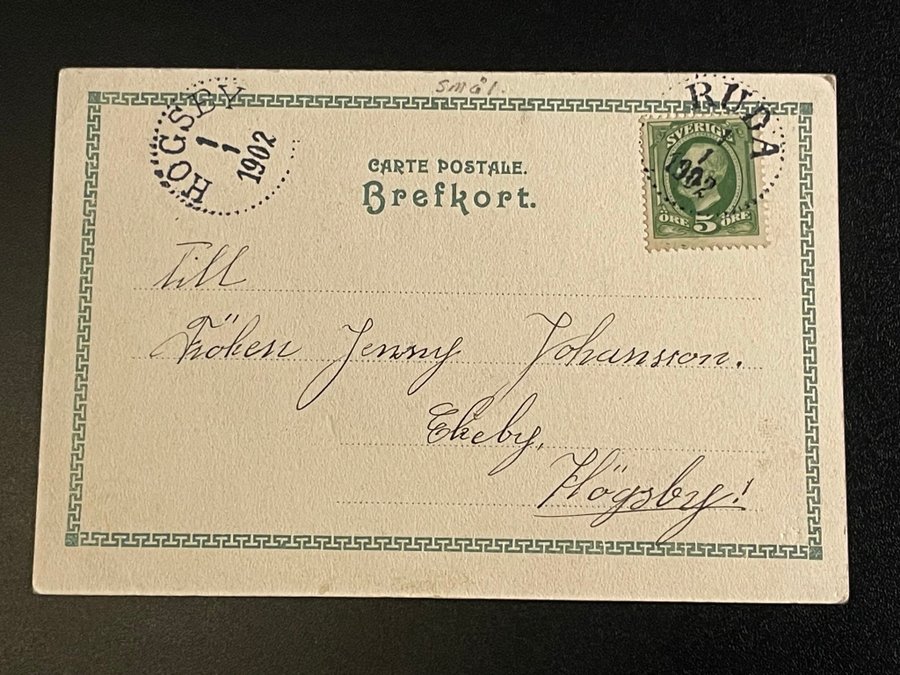 smål.
HÖGSBY
1
1
1902
RUDA
1
1
1902
SVERIGE
ÖRE 5 ÖRE
CARTE POSTALE.
Brefkort.
Till
Fröken Jenny Johansson.
Ekeby,
Högsby!